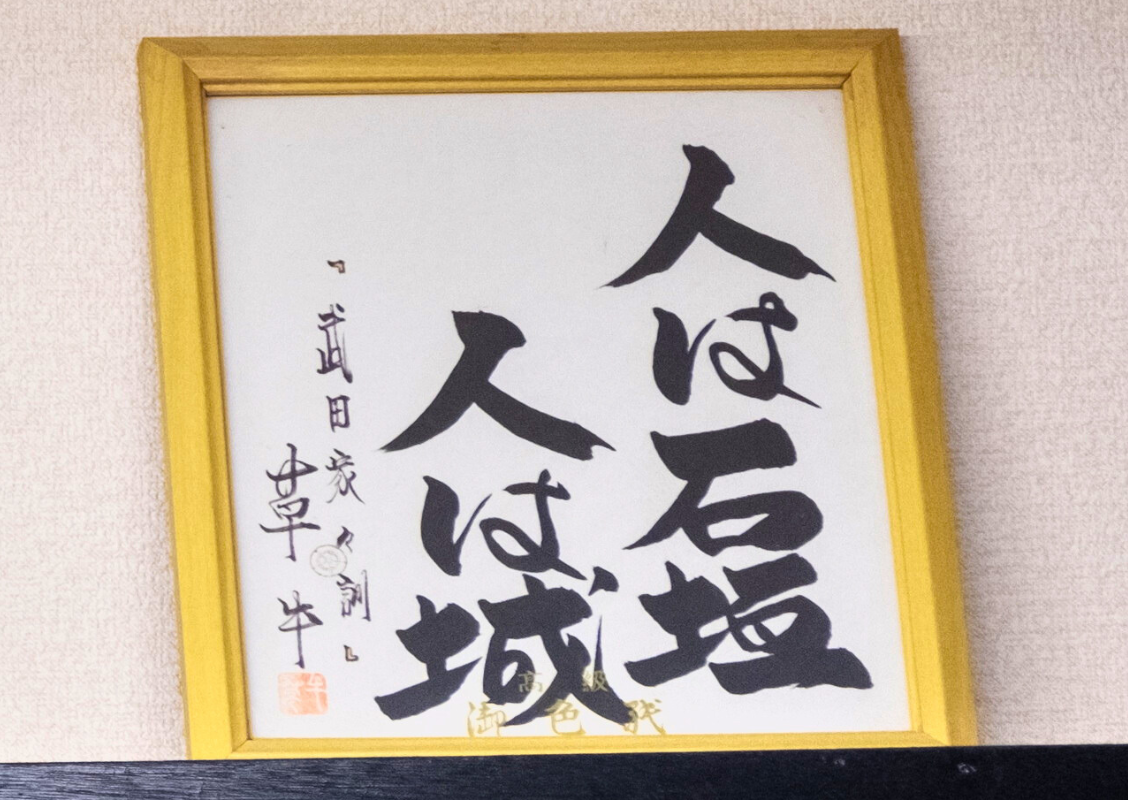 人は石垣
人は城
『武田家々訓』
草牛
高級
御色紙